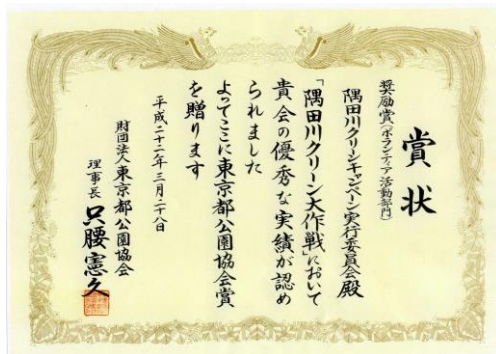 賞状
奨励賞(ボランティア活動部門)
隅田川クリーンキャンペーン実行委員会殿
「隅田川クリーン大作戦」において
貴会の優秀な実績が認め
られました
よってここに東京都公園協会賞
を贈ります
平成二十二年三月二十八日
財団法人東京都公園協会
理事長 只腰憲久